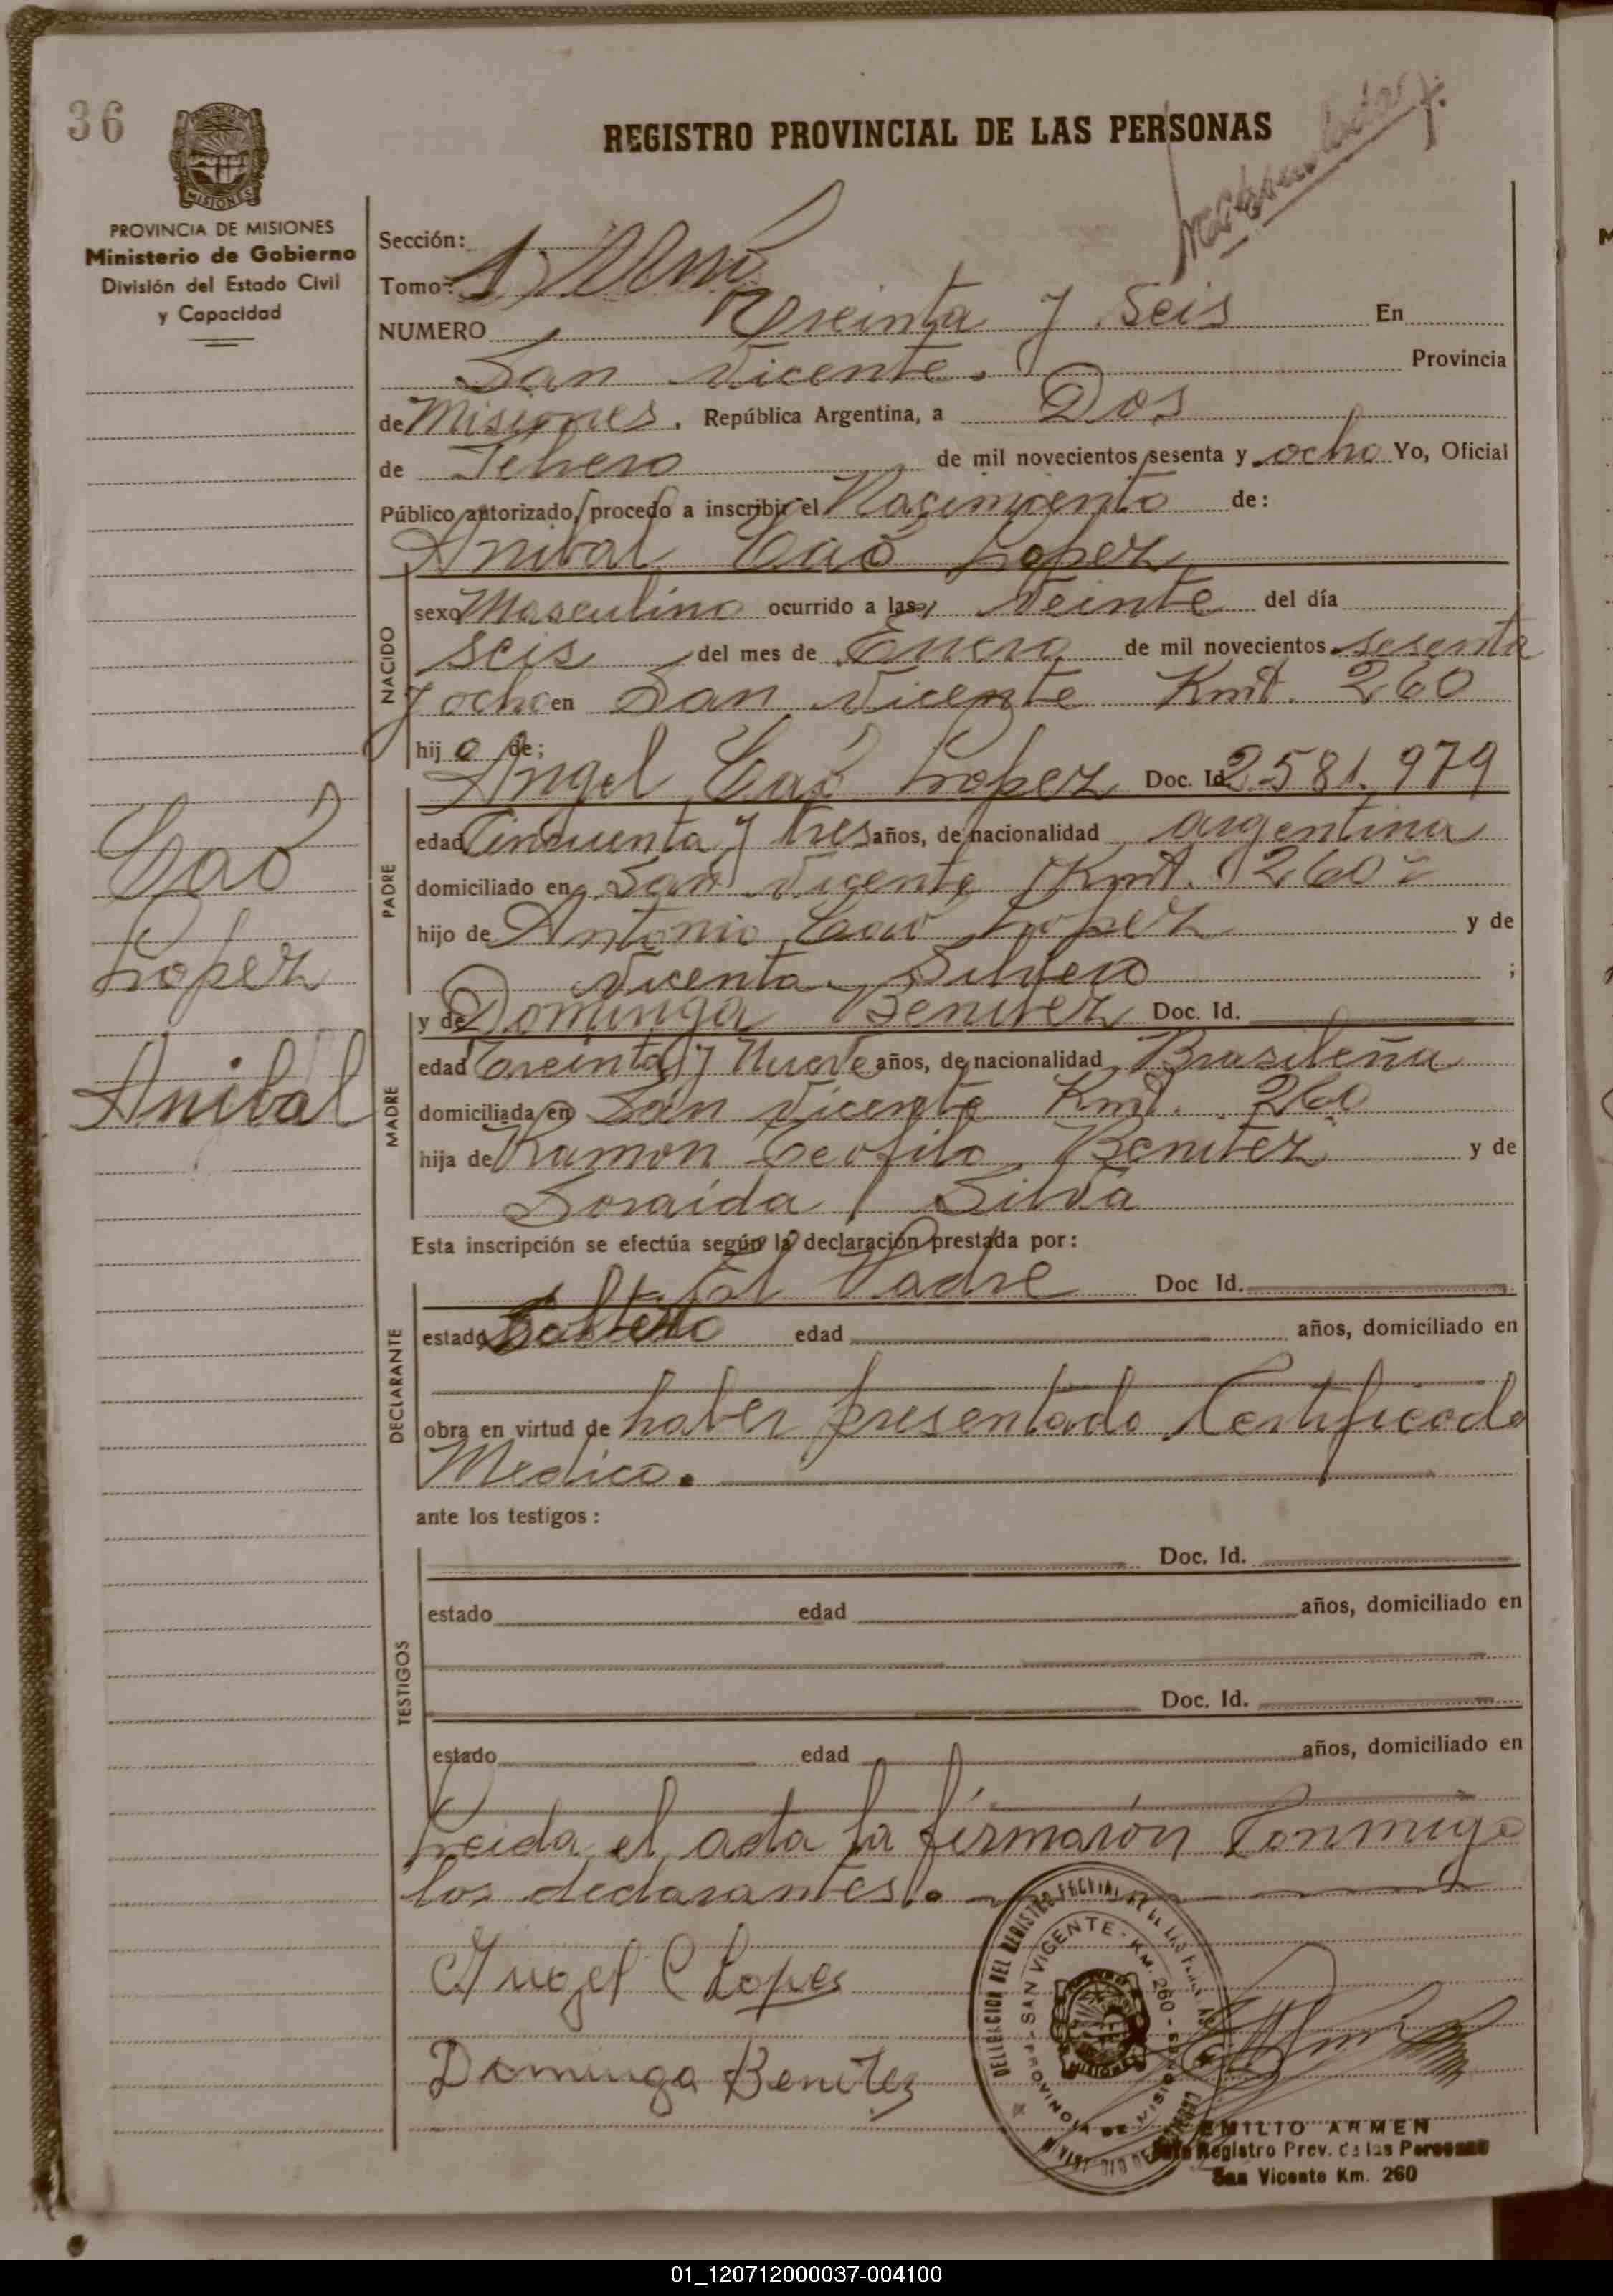 36
REGISTRO PROVINCIAL DE LAS PERSONAS
PROVINCIA DE MISIONES
Ministerio de Gobierno
División del Estado Civil
y Capacidad
Sección:
Tomo: 1) Uno
NUMERO Treinta y Seis En
San Vicente. Provincia
de Misiones, República Argentina, a Dos
de Febrero de mil novecientos sesenta y ocho Yo, Oficial
Público autorizado, procedo a inscribir el Nacimiento de:
Anibal Caó Lopez
NACIDO
sexo Masculino ocurrido a las Veinte del día
seis del mes de Enero de mil novecientos sesenta
y ocho en San Vicente Kmt. 260
hijo de:
Angel Caó Lopez Doc. Id. 2.581.979
PADRE
edad Cincuenta y tres años, de nacionalidad argentina
domiciliado en San Vicente Kmt. 260
hijo de Antonio Caó Lopez y de
Vicenta Silvero ;
y de Dominga Benitez Doc. Id.
MADRE
edad Treinta y Nueve años, de nacionalidad Brasileña
domiciliada en San Vicente Kmt. 260
hija de Ramon Teofilo Benitez y de
Soraida Silva
Caó
Lopez
Anibal
Esta inscripción se efectúa según la declaración prestada por:
DECLARANTE
El Padre Doc Id.
estado Soltero edad años, domiciliado en
obra en virtud de haber presentado Certificado
Medico.
ante los testigos:
TESTIGOS
Doc. Id.
estado edad años, domiciliado en
Doc. Id.
estado edad años, domiciliado en
Leida el acta la firmarón Conmigo
los declarantes.
Angel C Lopes
Dominga Benitez
SAN VICENTE - KM. 260 - PROVINCIA DE MISIONES
EMILIO ARMEN
Jefe Registro Prov. de las Personas
San Vicente Km. 260
01_120712000037-004100